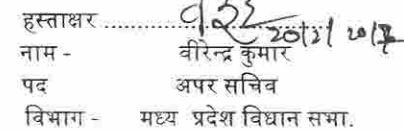 हस्ताक्षर ..................
नाम - वीरेन्द्र कुमार
पद अपर सचिव
विभाग - मध्य प्रदेश विधान सभा.